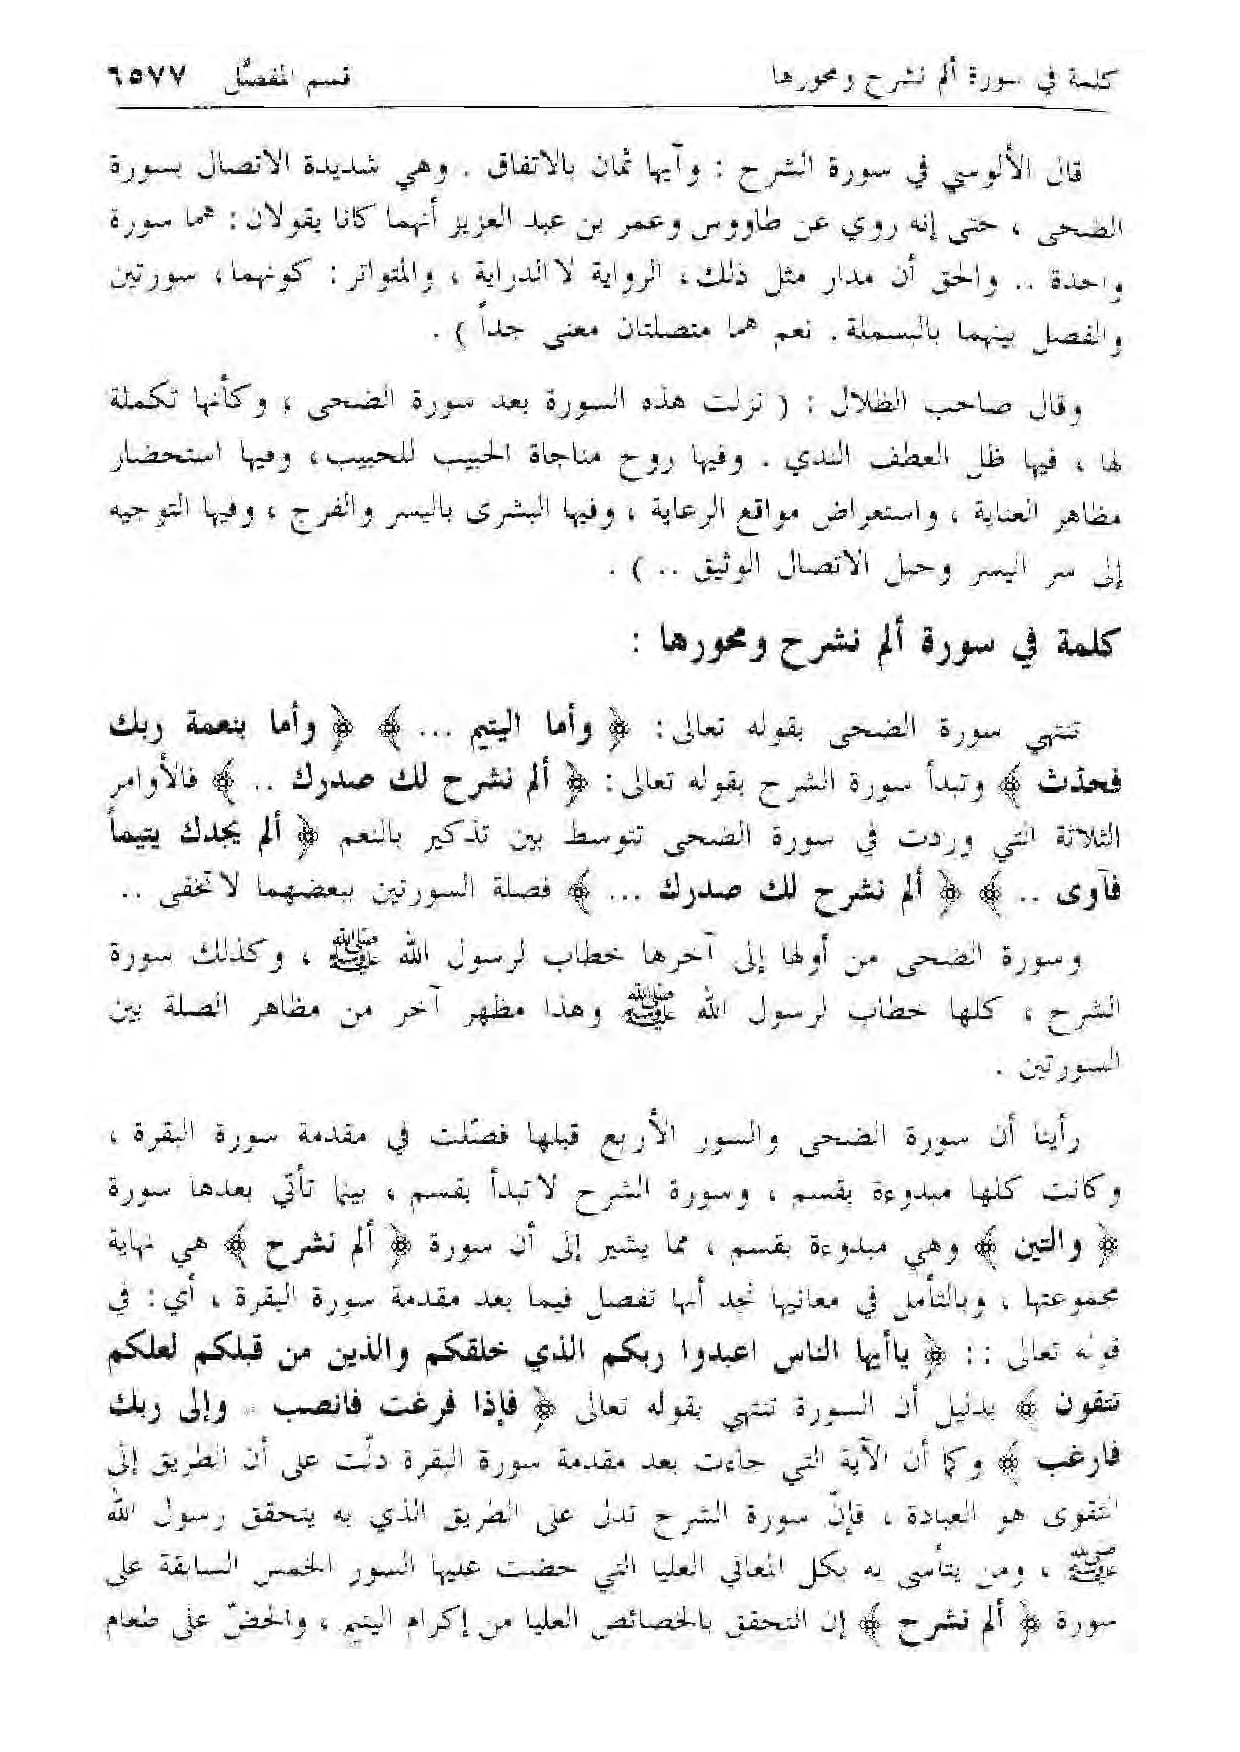 كلمة في سورة ألم نشرح ومحورها قسم المفصَّل ٦٥٧٧
قال الألوسي في سورة الشرح : وآيها ثمان بالاتفاق . وهي شديدة الاتصال بسورة
الضحى ، حتى إنه روي عن طاووس وعمر بن عبد العزيز أنهما كانا يقولان : هما سورة
واحدة .. والحق أن مدار مثل ذلك، الرواية لا الدراية ، والمتواتر : كونهما، سورتين
والفصل بينهما بالبسملة. نعم هما متصلتان معنى جداً ) .
وقال صاحب الظلال : ( نزلت هذه السورة بعد سورة الضحى ، وكأنها تكملة
لها ، فيها ظل العطف الندي . وفيها روح مناجاة الحبيب للحبيب، وفيها استحضار
مظاهر العناية ، واستعراض مواقع الرعاية ، وفيها البشرى باليسر والفرج ، وفيها التوجيه
إلى سر اليسر وحبل الاتصال الوثيق .. ) .
كلمة في سورة ألم نشرح ومحورها :
تنتهي سورة الضحى بقوله تعالى: ﴿ وأما اليتيم ... ﴾ ﴿ وأما بنعمة ربك
فحدث ﴾ وتبدأ سورة الشرح بقوله تعالى: ﴿ ألم نشرح لك صدرك .. ﴾ فالأوامر
الثلاثة التي وردت في سورة الضحى تتوسط بين تذكير بالنعم ﴿ ألم يجدك يتيماً
فآوى .. ﴾ ﴿ ألم نشرح لك صدرك ... ﴾ فصلة السورتين ببعضهما لا تخفى ..
وسورة الضحى من أولها إلى آخرها خطاب لرسول الله ﷺ ، وكذلك سورة
الشرح ، كلها خطاب لرسول الله ﷺ وهذا مظهر آخر من مظاهر الصلة بين
السورتين .
رأينا أن سورة الضحى والسور الأربع قبلها فصّلت في مقدمة سورة البقرة ،
وكانت كلها مبدوءة بقسم ، وسورة الشرح لا تبدأ بقسم ، بينما تأتي بعدها سورة
﴿ والتين ﴾ وهي مبدوءة بقسم ، مما يشير إلى أن سورة ﴿ ألم نشرح ﴾ هي نهاية
مجموعتها ، وبالتأمل في معانيها نجد أنها تفصل فيما بعد مقدمة سورة البقرة ، أي: في
قوله تعالى :: ﴿ ياأيها الناس اعبدوا ربكم الذي خلقكم والذين من قبلكم لعلكم
تتقون ﴾ بدليل أن السورة تنتهي بقوله تعالى ﴿ فإذا فرغت فانصب . وإلى ربك
فارغب ﴾ وكما أن الآية التي جاءت بعد مقدمة سورة البقرة دلّت على أن الطريق إلى
التقوى هو العبادة ، فإنّ سورة الشرح تدل على الطريق الذي به يتحقق رسول الله
ﷺ ، ومن يتأسى به بكل المعاني العليا التي حضت عليها السور الخمس السابقة على
سورة ﴿ ألم نشرح ﴾ إن التحقق بالخصائص العليا من إكرام اليتيم ، والحضّ على طعام